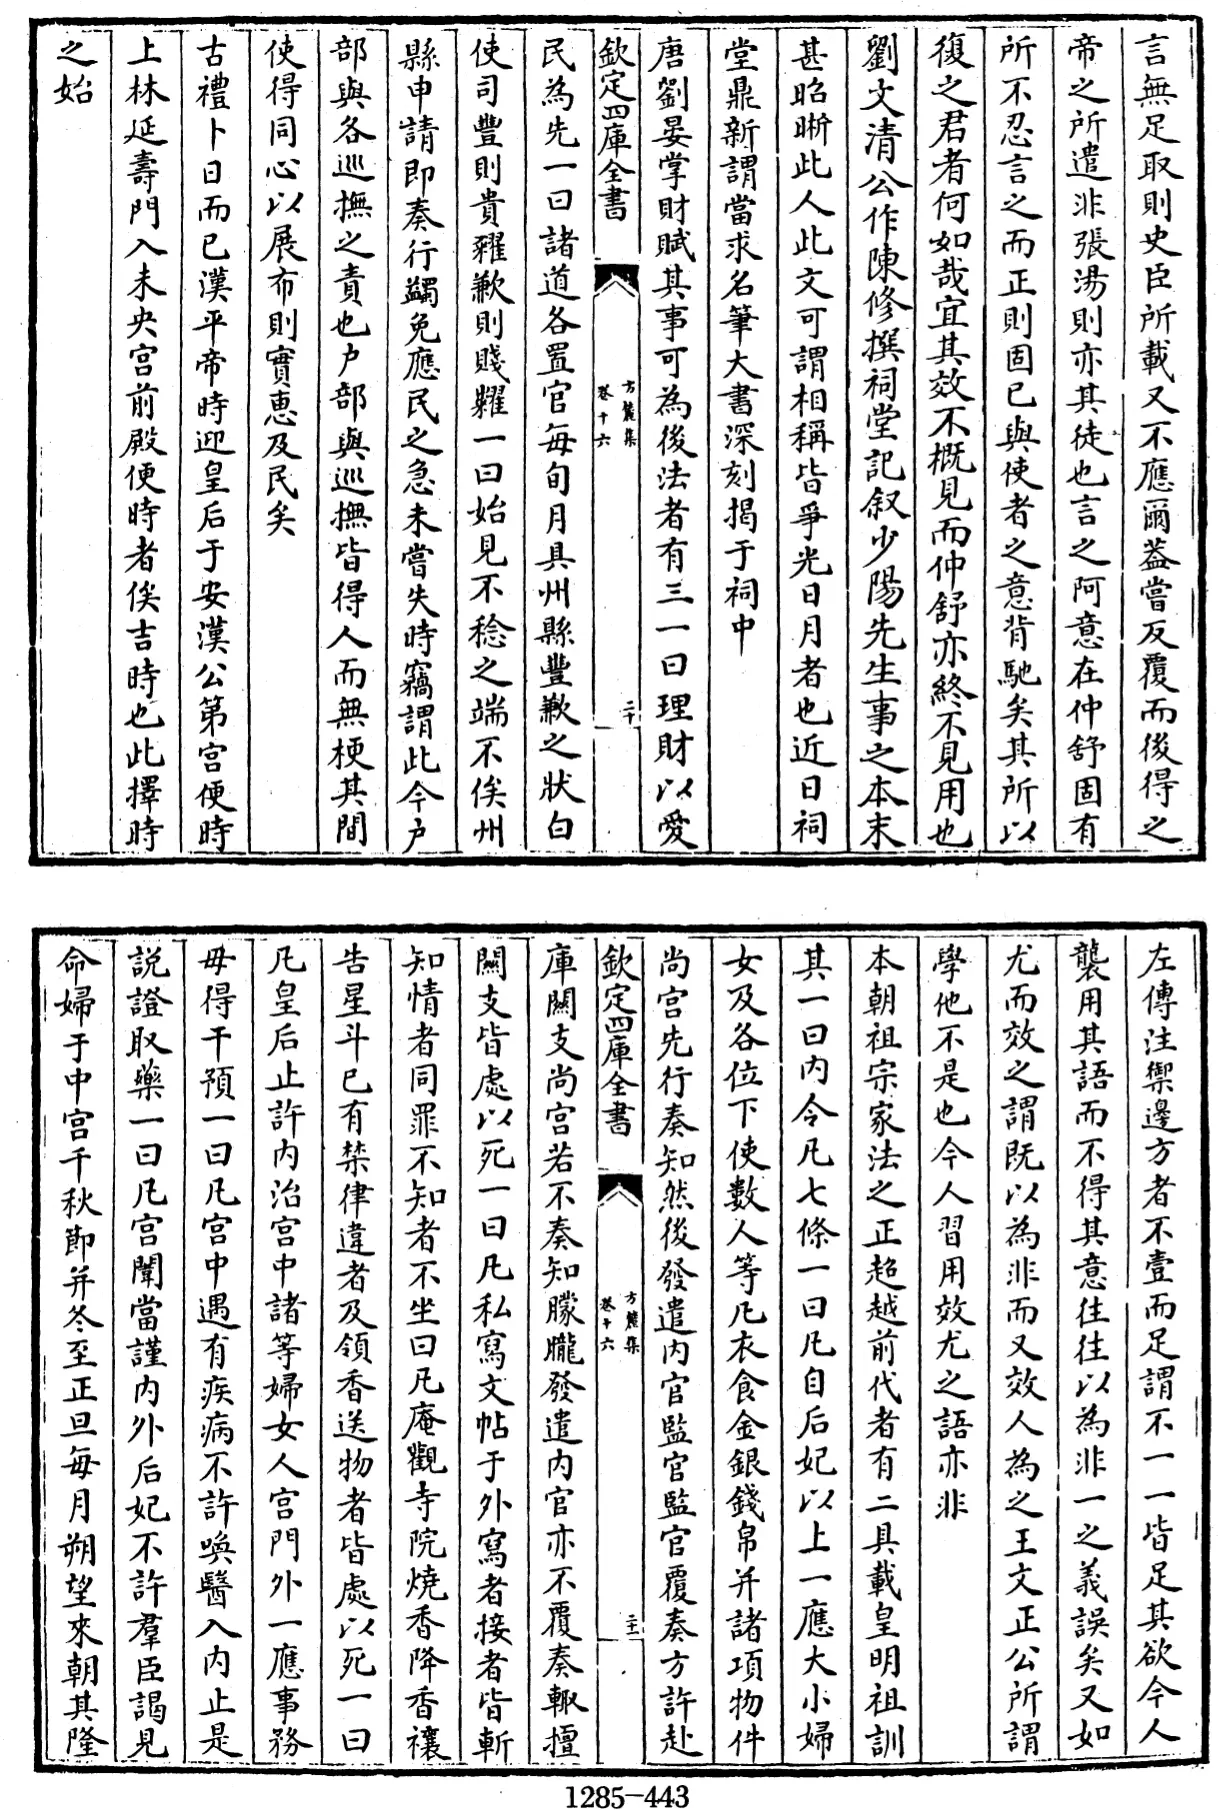 言無足取則史臣所載又不應爾葢嘗反覆而後得之
帝之所遣非張湯則亦其徒也言之阿意在仲舒固有
所不忍言之而正則固已與使者之意背馳矣其所以
復之君者何如哉宜其效不概見而仲舒亦終不見用也
劉文清公作陳修撰祠堂記叙少陽先生事之本末
甚昭晰此人此文可謂相稱皆爭光日月者也近日祠
堂鼎新謂當求名筆大書深刻揭于祠中
唐劉晏掌財賦其事可為後法者有三一曰理財以愛
欽定四庫全書
方麓集
卷十六
二十
民為先一曰諸道各置官每旬月具州縣豐歉之狀白
使司豐則貴糴歉則賤糶一曰始見不稔之端不俟州
縣申請即奏行蠲免應民之急未嘗失時竊謂此今户
部與各巡撫之責也户部與巡撫皆得人而無梗其間
使得同心以展布則實惠及民矣
古禮卜日而已漢平帝時迎皇后于安漢公第宮便時
上林延壽門入未央宮前殿便時者俟吉時也此擇時
之始
左傳注禦邊方者不壹而足謂不一一皆足其欲今人
襲用其語而不得其意往往以為非一之義誤矣又如
尤而效之謂既以為非而又效人為之王文正公所謂
學他不是也今人習用效尤之語亦非
本朝祖宗家法之正超越前代者有二具載皇明祖訓
其一曰内令凡七條一曰凡自后妃以上一應大小婦
女及各位下使數人等凡衣食金銀錢帛并諸項物件
尚宮先行奏知然後發遣内官監官監官覆奏方許赴
欽定四庫全書
方麓集
卷十六
二十一
庫關支尚宮若不奏知朦朧發遣内官亦不覆奏輙擅
關支皆處以死一曰凡私寫文帖于外寫者接者皆斬
知情者同罪不知者不坐曰凡庵觀寺院燒香降香禳
告星斗已有禁律違者及領香送物者皆處以死一曰
凡皇后止許内治宮中諸等婦女人宮門外一應事務
毋得干預一曰凡宮中遇有疾病不許喚醫入内止是
說證取藥一曰凡宮闈當謹内外后妃不許羣臣謁見
命婦于中宮千秋節并冬至正旦每月朔望來朝其隆
1285-443